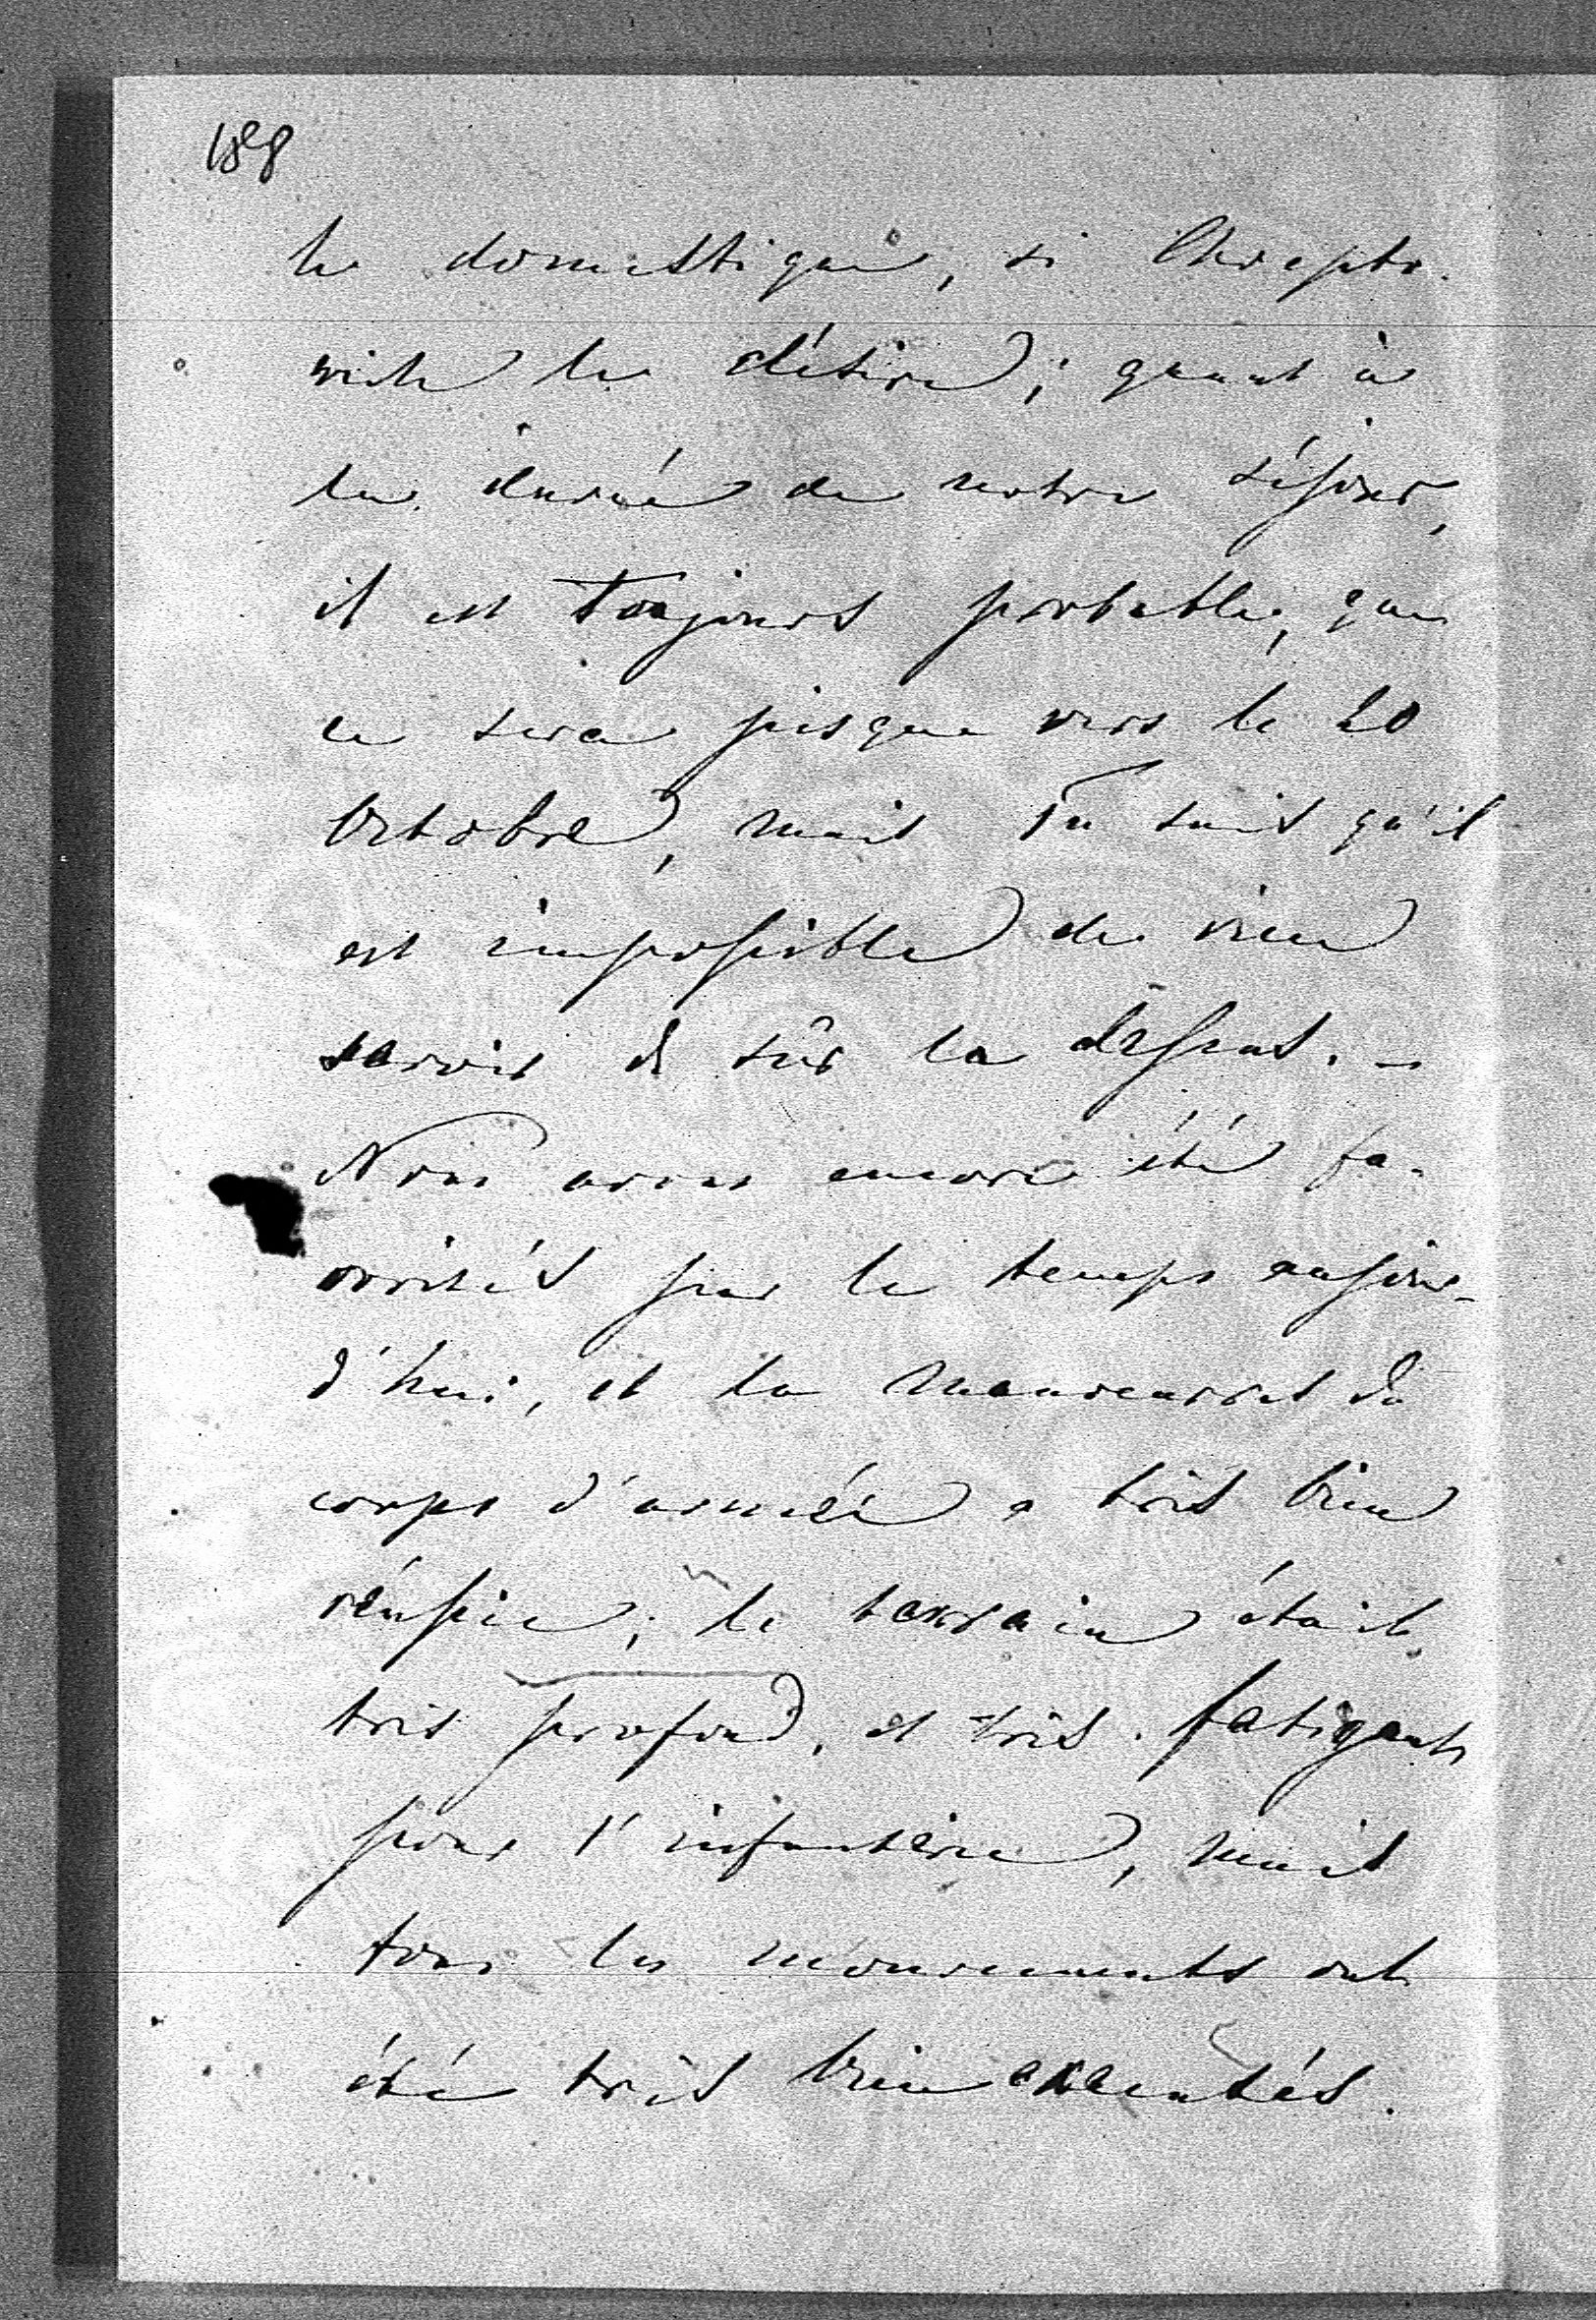 188
le domestique, si Chrepto-
witch le désire; quant à
la durée de notre séjour,
il est toujours probable, que
ce sera jusque vers le 20
Octobre, mais Tu sais qu'il
est impossible de rien
savoir de sûr la dessus. –
Nous avons encore été fa-
vorisés par le temps aujour-
d'hui, et la manoeuvre du
corps d'armée a très bien
réussie; le terrain était
très profond, et très fatigant
pour l'infanterie, mais
tous les mouvements ont
été très bien exécutés.